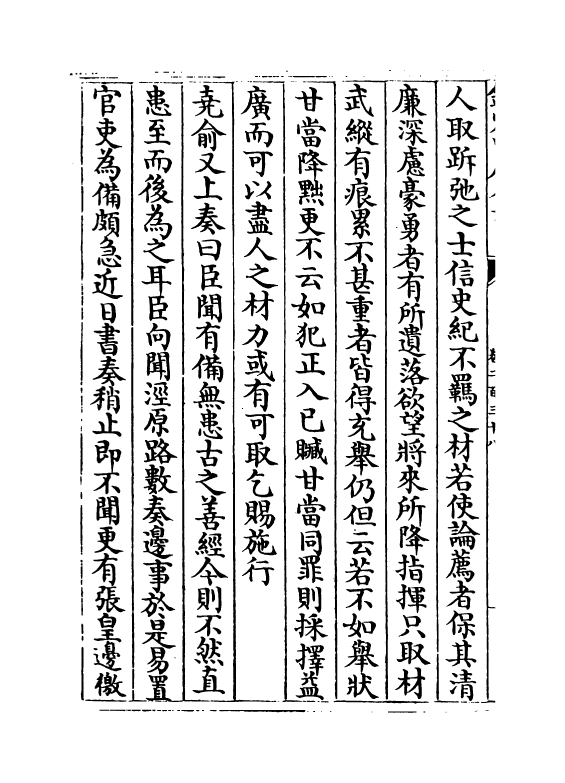 人取跅弛之士信史紀不羈之材若使論薦者保其清
廉深慮豪勇者有所遺落欲望將來所降指揮只取材
武縱有痕累不甚重者皆得充舉仍但云若不如舉狀
甘當降黜更不云如犯正入已贓甘當同罪則採擇益
廣而可以盡人之材力或有可取乞賜施行
堯俞又上奏曰臣聞有備無患古之善經今則不然直
患至而後為之耳臣向聞涇原路數奏邊事於是易置
官吏為備頗急近日書奏稍止即不聞更有張皇邊檄